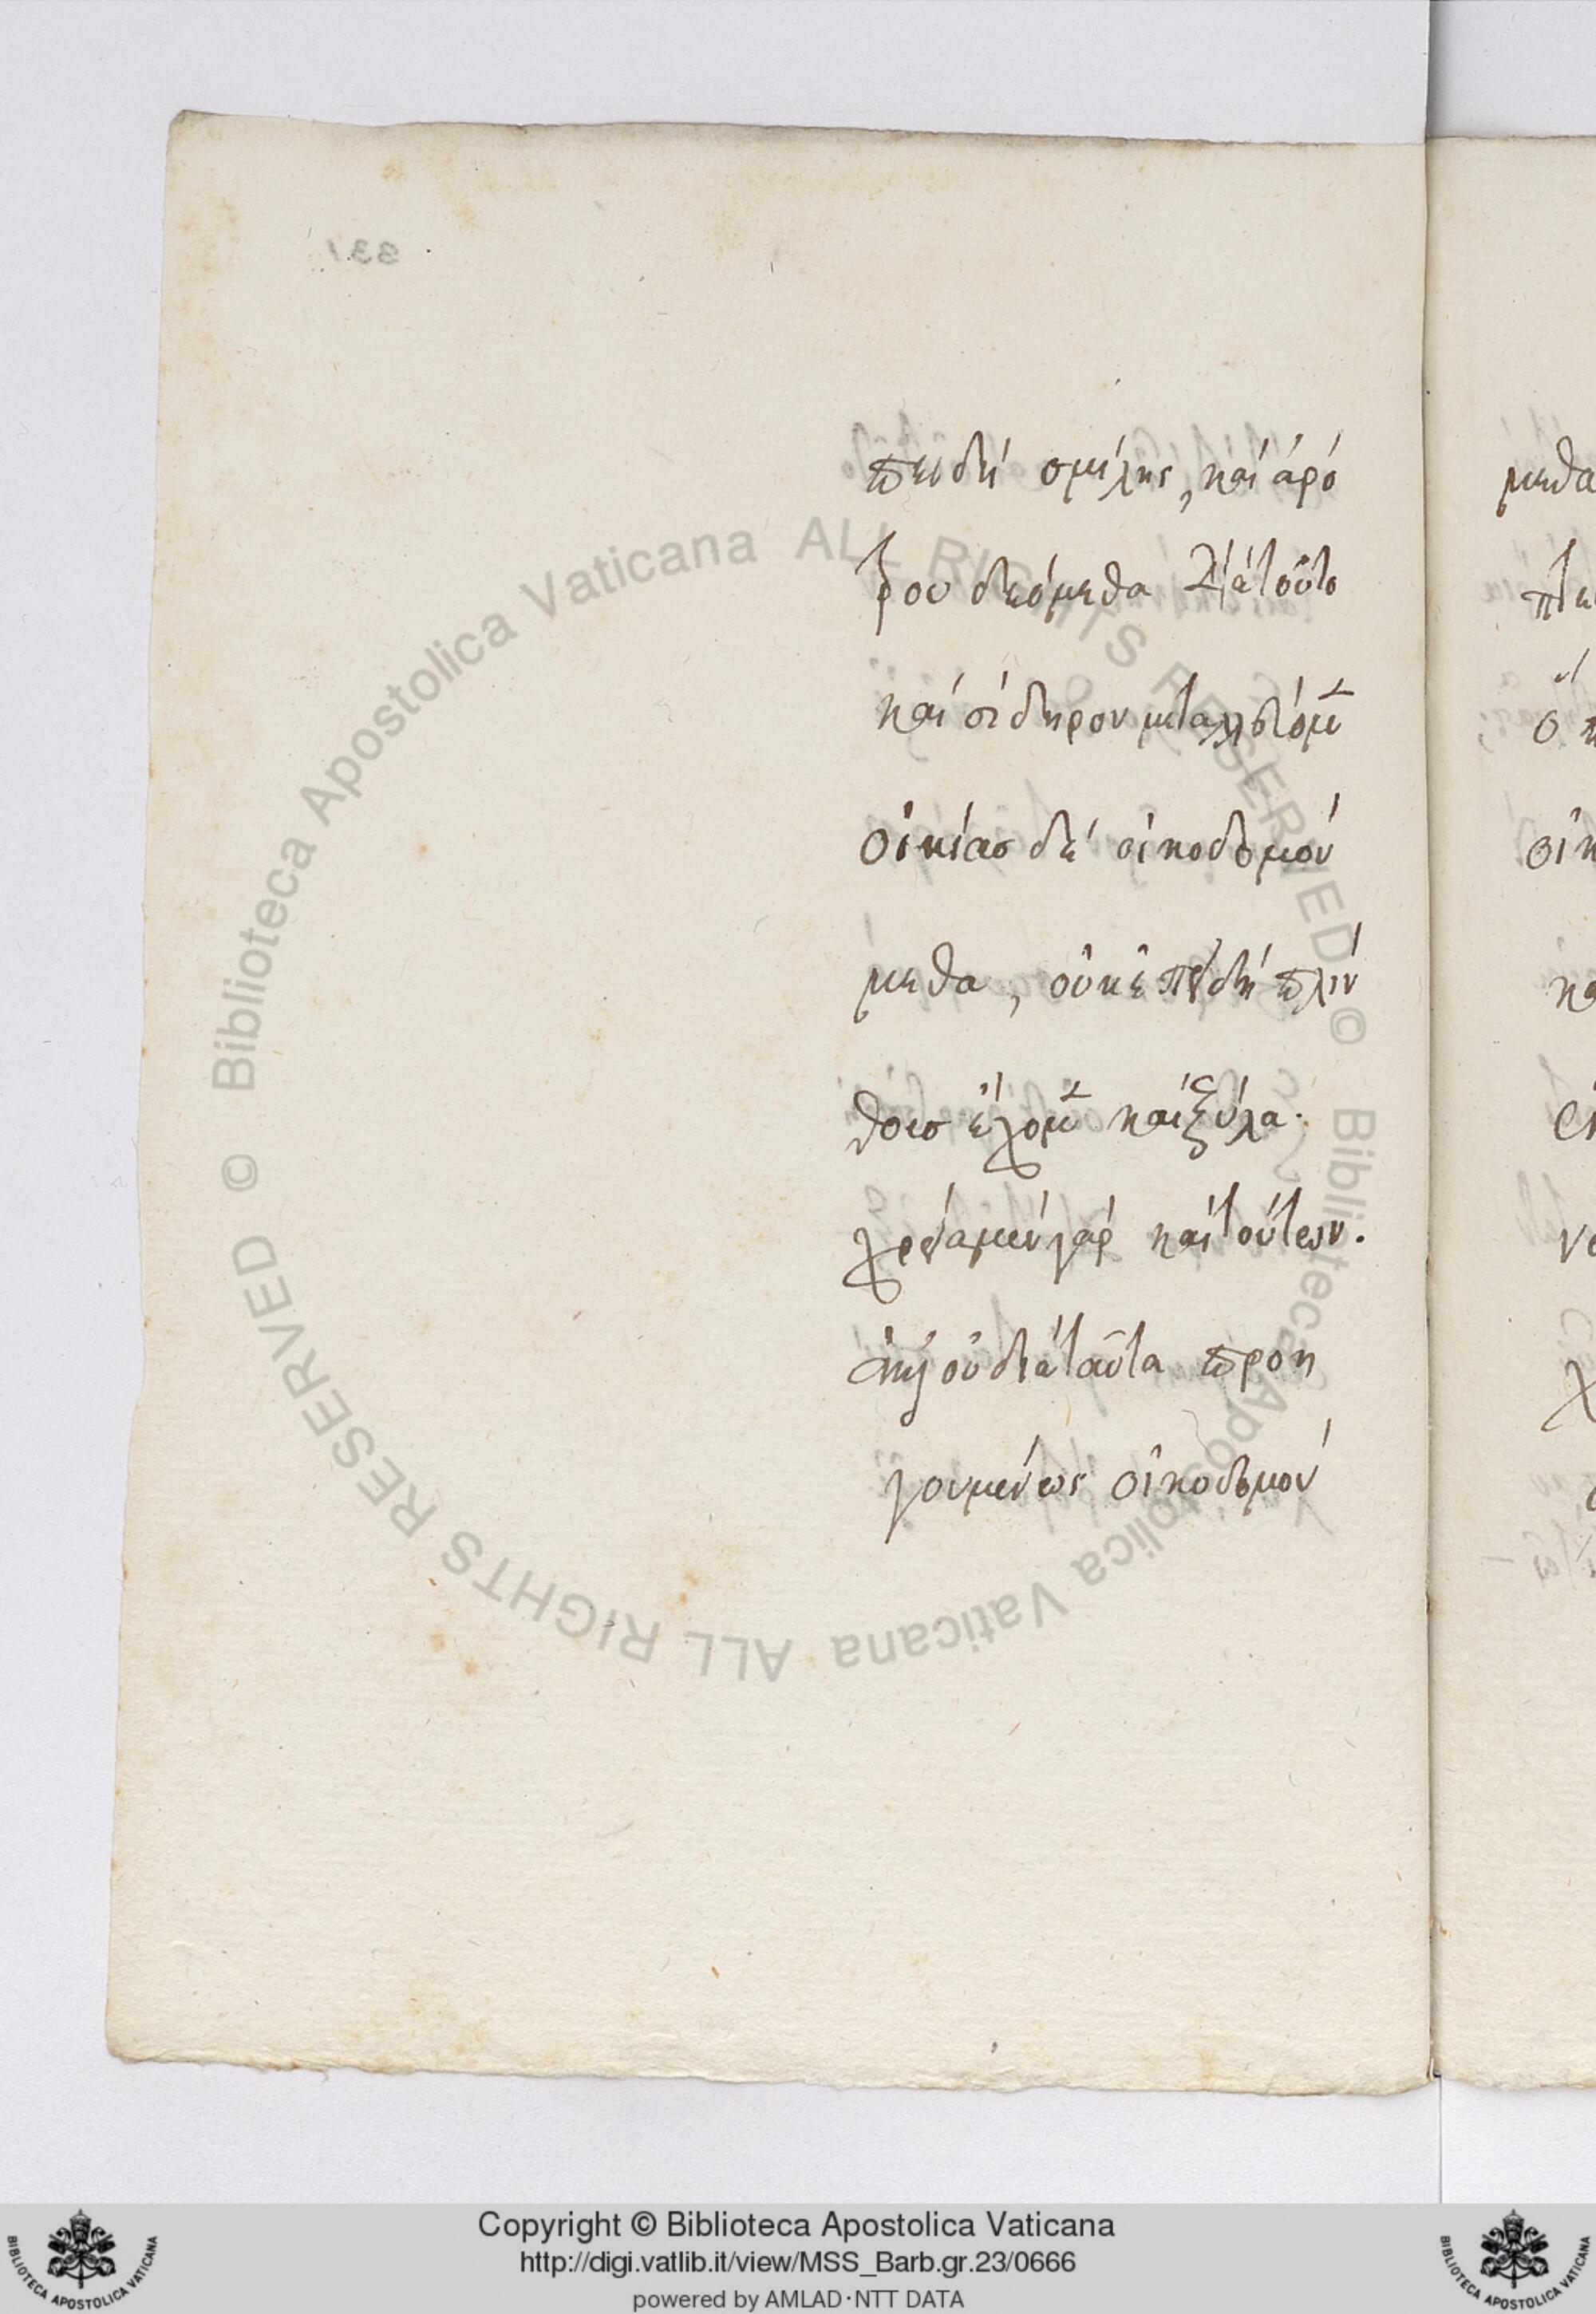 133
πειδὴ σμίλης, καὶ ἀρό
τρου δεόμεθα διὰ τοῦτο
καὶ σίδηρον μεταλλεύομ̃
οἰκίας δὲ οἰκοδομού
μεθα, οὐκ ἐπειδὴ πλίν
θους ἔχομ̃ καὶ ξύλα·
χρεία μὲν γὰρ καὶ τούτων.
ἀλλ' οὐ διὰ ταῦτα προη
γουμένως οἰκοδομού
μεθα
οἰκ
© Biblioteca Apostolica Vaticana ALL RIGHTS RESERVED © Biblioteca Apostolica Vaticana ALL RIGHTS RESERVED
Copyright © Biblioteca Apostolica Vaticana
http://digi.vatlib.it/view/MSS_Barb.gr.23/0666
powered by AMLAD·NTT DATA
BIBLIOTECA APOSTOLICA VATICANA
BIBLIOTECA APOSTOLICA VATICANA